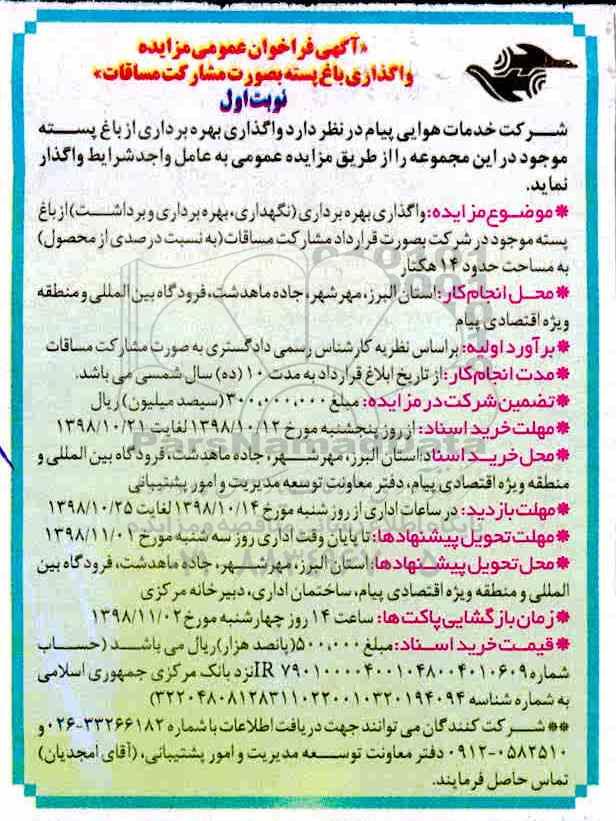 «آگهی فراخوان عمومی مزایده
واگذاری باغ پسته بصورت مشارکت مساقات»
نوبت اول
شرکت خدمات هوایی پیام در نظر دارد واگذاری بهره برداری از باغ پسته
موجود در این مجموعه را از طریق مزایده عمومی به عامل واجد شرایط واگذار
نماید.
* موضوع مزایده: واگذاری بهره برداری (نگهداری، بهره برداری و برداشت) از باغ
پسته موجود در شرکت بصورت قرارداد مشارکت مساقات (به نسبت درصدی از محصول)
به مساحت حدود ۱۴ هکتار
* محل انجام کار: استان البرز، مهرشهر، جاده ماهدشت، فرودگاه بین المللی و منطقه
ویژه اقتصادی پیام
* برآورد اولیه: بر اساس نظریه کارشناس رسمی دادگستری به صورت مشارکت مساقات
* مدت انجام کار: از تاریخ ابلاغ قرارداد به مدت ۱۰ (ده) سال شمسی می باشد.
* تضمین شرکت در مزایده: مبلغ ۳۰۰,۰۰۰,۰۰۰ (سیصد میلیون) ریال
* مهلت خرید اسناد: از روز پنجشنبه مورخ ۱۳۹۸/۱۰/۱۲ لغایت ۱۳۹۸/۱۰/۲۱
* محل خرید اسناد: استان البرز، مهرشهر، جاده ماهدشت، فرودگاه بین المللی و
منطقه ویژه اقتصادی پیام، دفتر معاونت توسعه مدیریت و امور پشتیبانی
* مهلت بازدید: در ساعات اداری از روز شنبه مورخ ۱۳۹۸/۱۰/۱۴ لغایت ۱۳۹۸/۱۰/۲۵
* مهلت تحویل پیشنهادها: تا پایان وقت اداری روز سه شنبه مورخ ۱۳۹۸/۱۱/۰۱
* محل تحویل پیشنهادها: استان البرز، مهرشهر، جاده ماهدشت، فرودگاه بین
المللی و منطقه ویژه اقتصادی پیام، ساختمان اداری، دبیرخانه مرکزی
* زمان بازگشایی پاکت ها: ساعت ۱۴ روز چهارشنبه مورخ ۱۳۹۸/۱۱/۰۲
* قیمت خرید اسناد: مبلغ ۵۰۰,۰۰۰ (پانصد هزار) ریال می باشد (حساب
شماره IR ۷۹۰۱۰۰۰۰۴۰۰۱۰۴۸۰۰۴۰۱۰۶۰۹ نزد بانک مرکزی جمهوری اسلامی
به شماره شناسه ۳۲۲۰۴۸۰۸۱۲۸۳۱۱۰۲۲۰۰۱۰۳۲۰۱۹۴۰۹۴)
** شرکت کنندگان می توانند جهت دریافت اطلاعات با شماره ۳۳۲۶۶۱۸۲-۰۲۶ و
۰۹۱۲-۰۵۸۲۵۱۰ دفتر معاونت توسعه مدیریت و امور پشتیبانی، (آقای امجدیان)
تماس حاصل فرمایند.
ParsNamadData